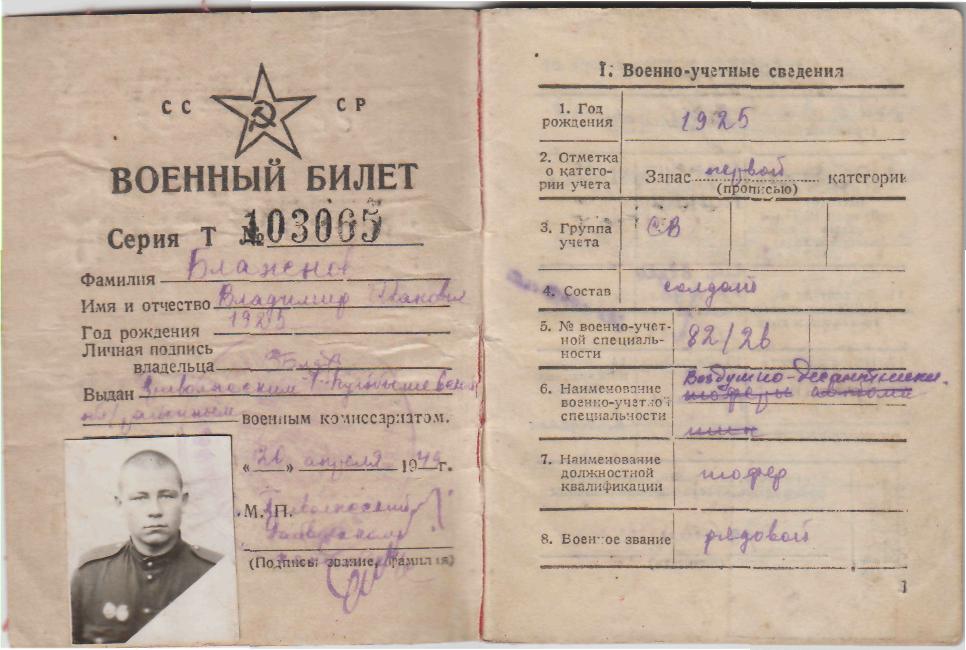 СС СР
ВОЕННЫЙ БИЛЕТ
Серия Т № 103065
Фамилия Блаженов
Имя и отчество Владимир Иванович
Год рождения 1925
Личная подпись
владельца
Выдан
военным комиссариатом.
«26» апреля 1949 г.
М. П.
(Подпись, звание, фамилия)
1. Военно-учетные сведения
1. Год
рождения
1925
2. Отметка
о катего-
рии учета
Запас первой категории
(прописью)
3. Группа
учета
СВ
4. Состав солдат
5. № военно-учет-
ной специаль-
ности
82/26
6. Наименование
военно-учетной
специальности
Воздушно-десантники.
шоферы автома
шин
7. Наименование
должностной
квалификации
шофер
8. Военное звание рядовой